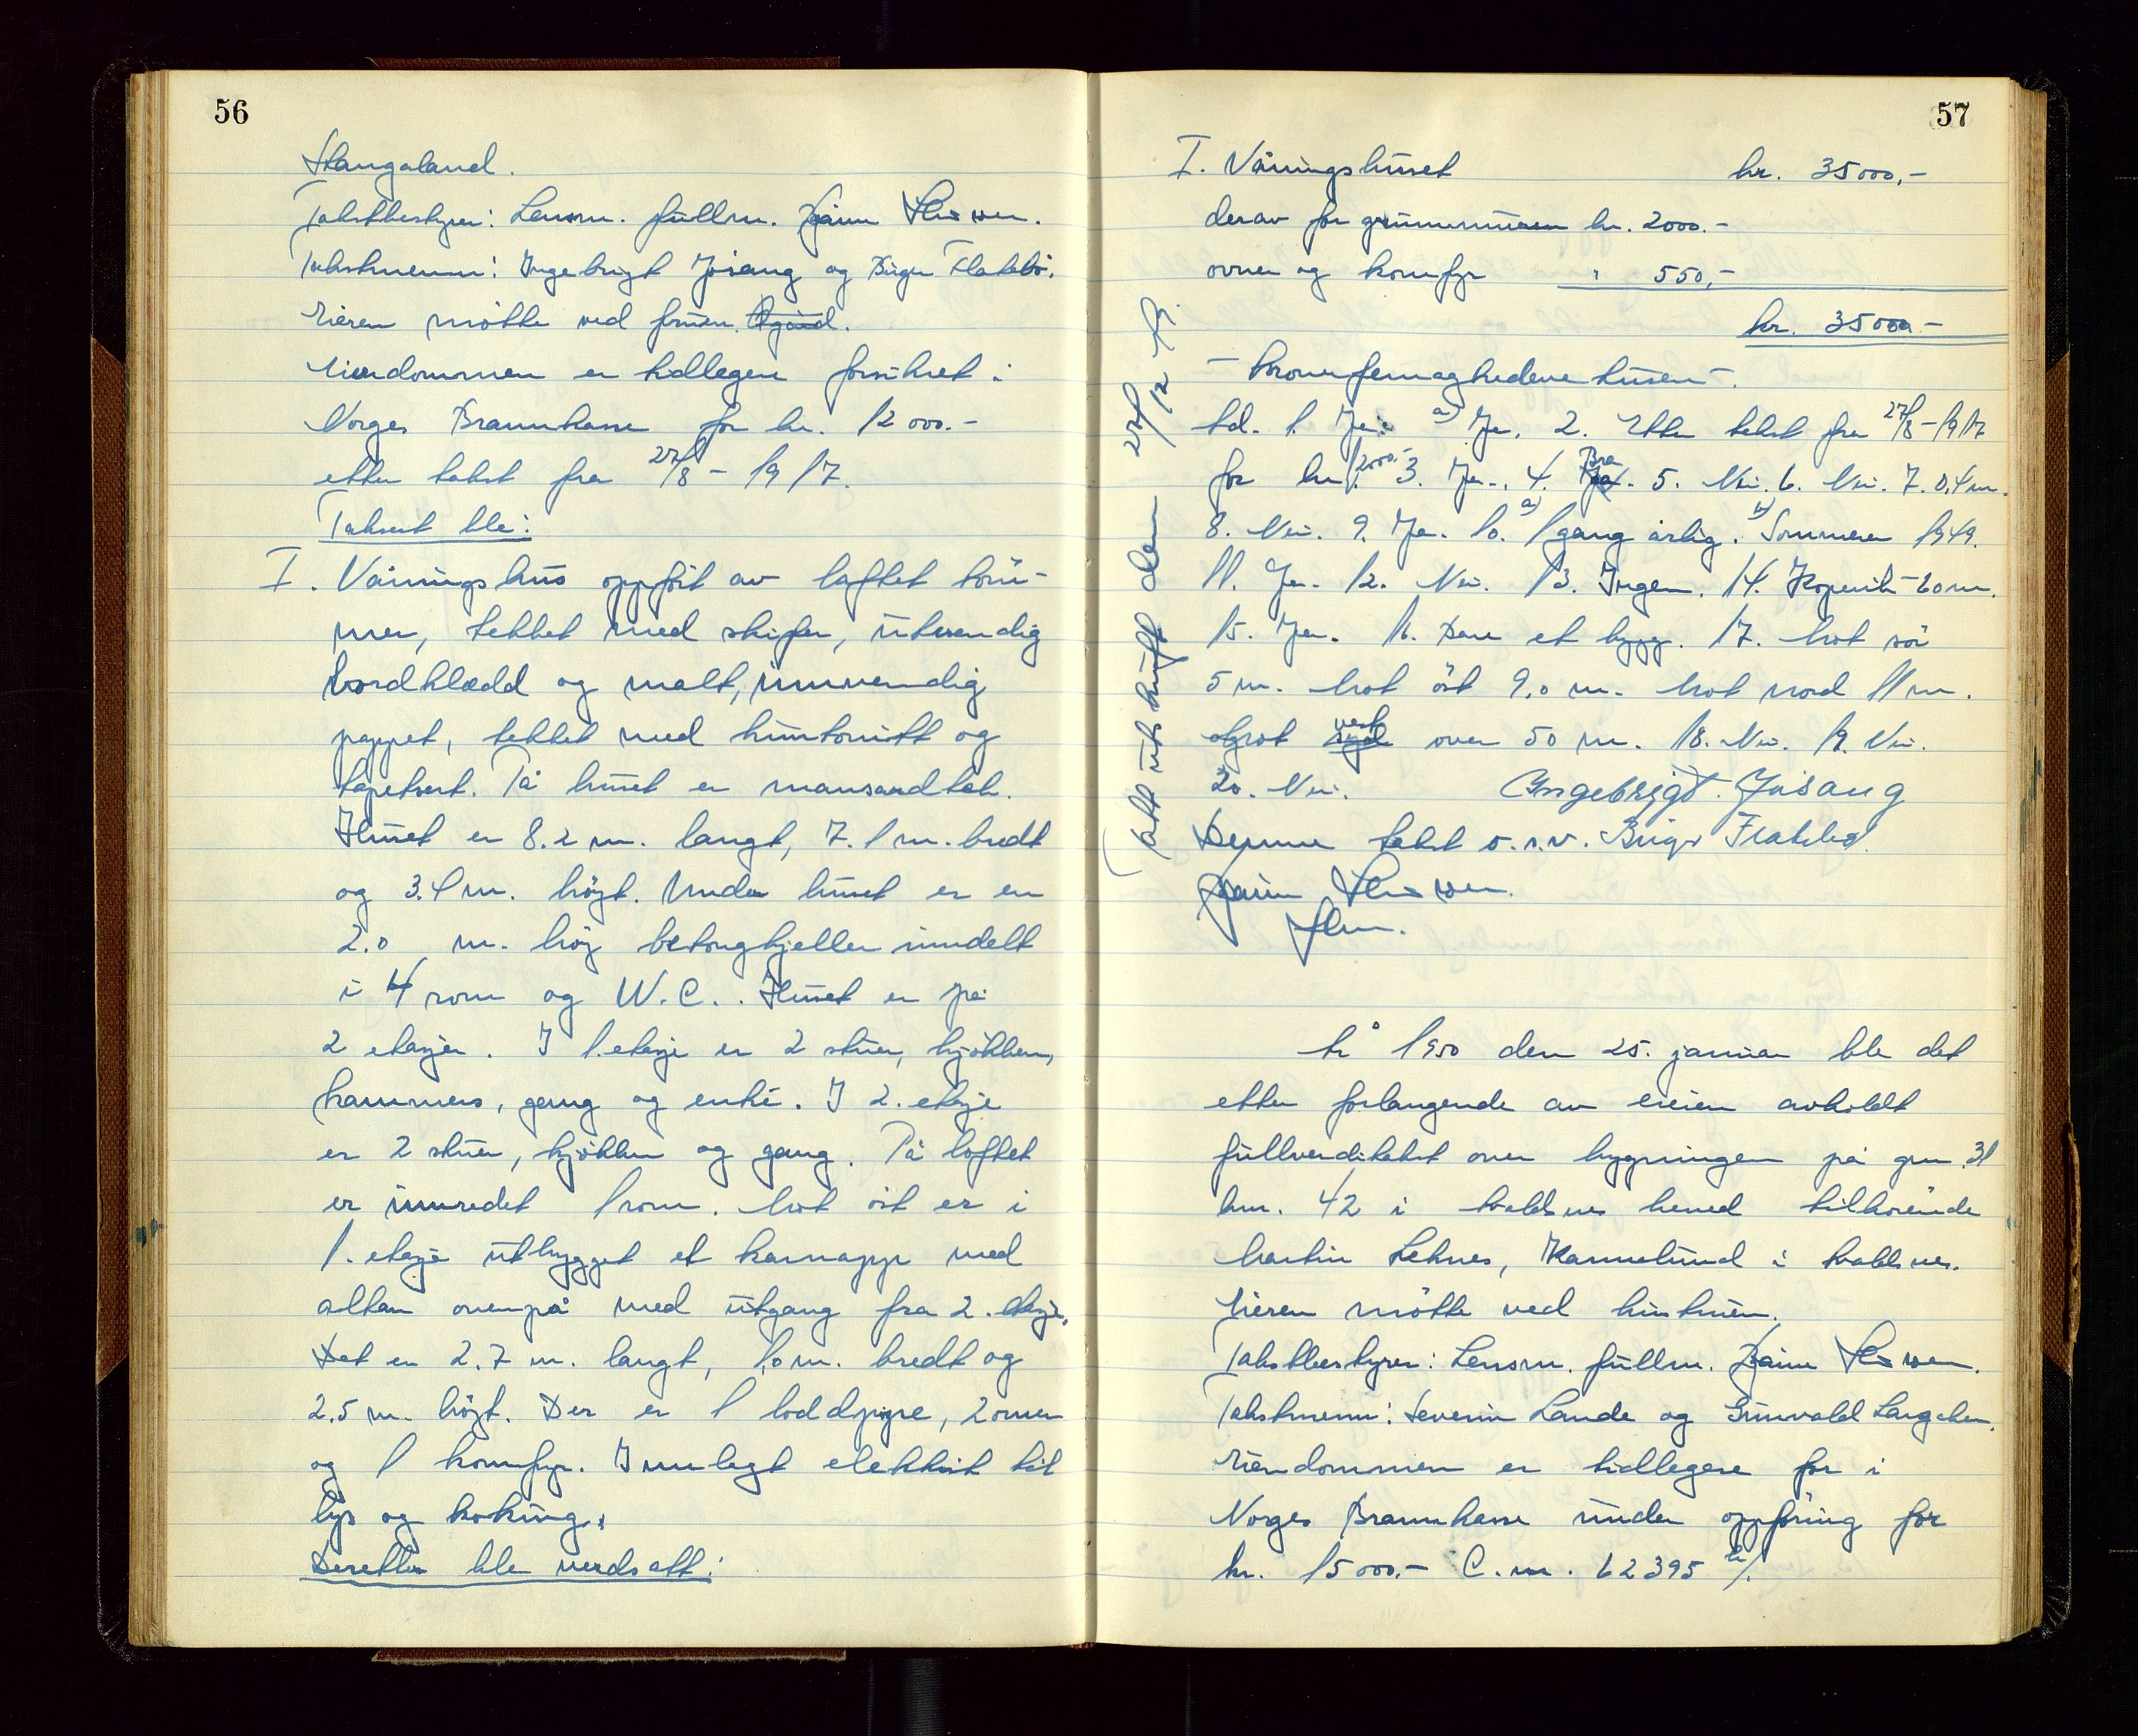 56
Stangaland.
Takstbestyrer: Lensm. fullm.
Takstmenn: Ingebrigt Jøsang og Birger Flatebø.
Eieren møtte ved fruen.
Eiendommen er tidligere forsikret i
Norges Brannkasse for kr. 12 000.-
etter takst fra 27/8 - 1917.
Taksert ble:
I. Våningshus oppført av laftet tøm-
mer, tekket med skifer, utvendig
bordklædd og malt, innvendig
pappet, tekket med huntonitt og
tapetsert. På huset er mansardtak.
Huset er 8.2 m. langt, 7.1 m. bredt
og 3.4 m. høgt. Under huset er en
2.0 m. høg betongkjeller inndelt
i 4 rom og W.C.. Huset er på
2 etasjer. I 1. etasje er 2 stuer, kjøkken,
kammers, gang og entré. I 2. etasje
er 2 stuer, kjøkken og gang. På loftet
er innredet 1 rom. Mot øst er i
1. etasje utbygget et karnapp med
altan ovenpå med utgang fra 2. etasje.
Det er 2.7 m. langt, 1,0 m. bredt og
2.5 m. høgt. Der er 1 loddpipe, 2 ovner
og 1 komfyr. Innlagt elektrisk til
lys og koking.
Deretter ble verdsatt:
57
I. Våningshuset kr. 35 000,-
derav for grunnmuren kr. 2000.-
ovner og komfyr " 550,-
kr. 35 000.-
- Kronerfemogtredevetusen -.
td. 1. Ja. a) Ja. 2. Etter takst fra 27/8 - 1917
for kr. 12000.- 3. Ja. 4. Bra 5. Nei. 6. Nei. 7. 0,4 m.
8. Nei. 9. Ja. 10. a) 1 gang årlig. b) Sommeren 1949.
11. Ja. 12. Nei. 13. Ingen. 14. Kopervik - 20 m.
15. Ja. 16. Bare et bygg. 17. Mot sø
5 m. Mot øst 9.0 m. Mot nord 11 m.
Mot vest over 50 m. 18. Nei. 19. Nei.
20. Nei. Ingebrigt Jøsang
Denne takst o.s.v. Birger Flatebø.
Tatt utskrift den 27/12
År 1950 den 25. januar ble det
etter forlangende av eieren avholdt
fullverditakst over bygningen på gnr. 31
bnr. 42 i Avaldsnes herred tilhørende
Martin Lehnes, Karmsund i Avaldsnes.
Eieren møtte ved hustruen.
Takstbestyrer: Lensm. fullm.
Takstmenn: Severin Lande og Gunvald Langåker.
Eiendommen er tidligere for i
Norges Brannkasse under oppføring for
kr. 15 000.- C. nr. 62395